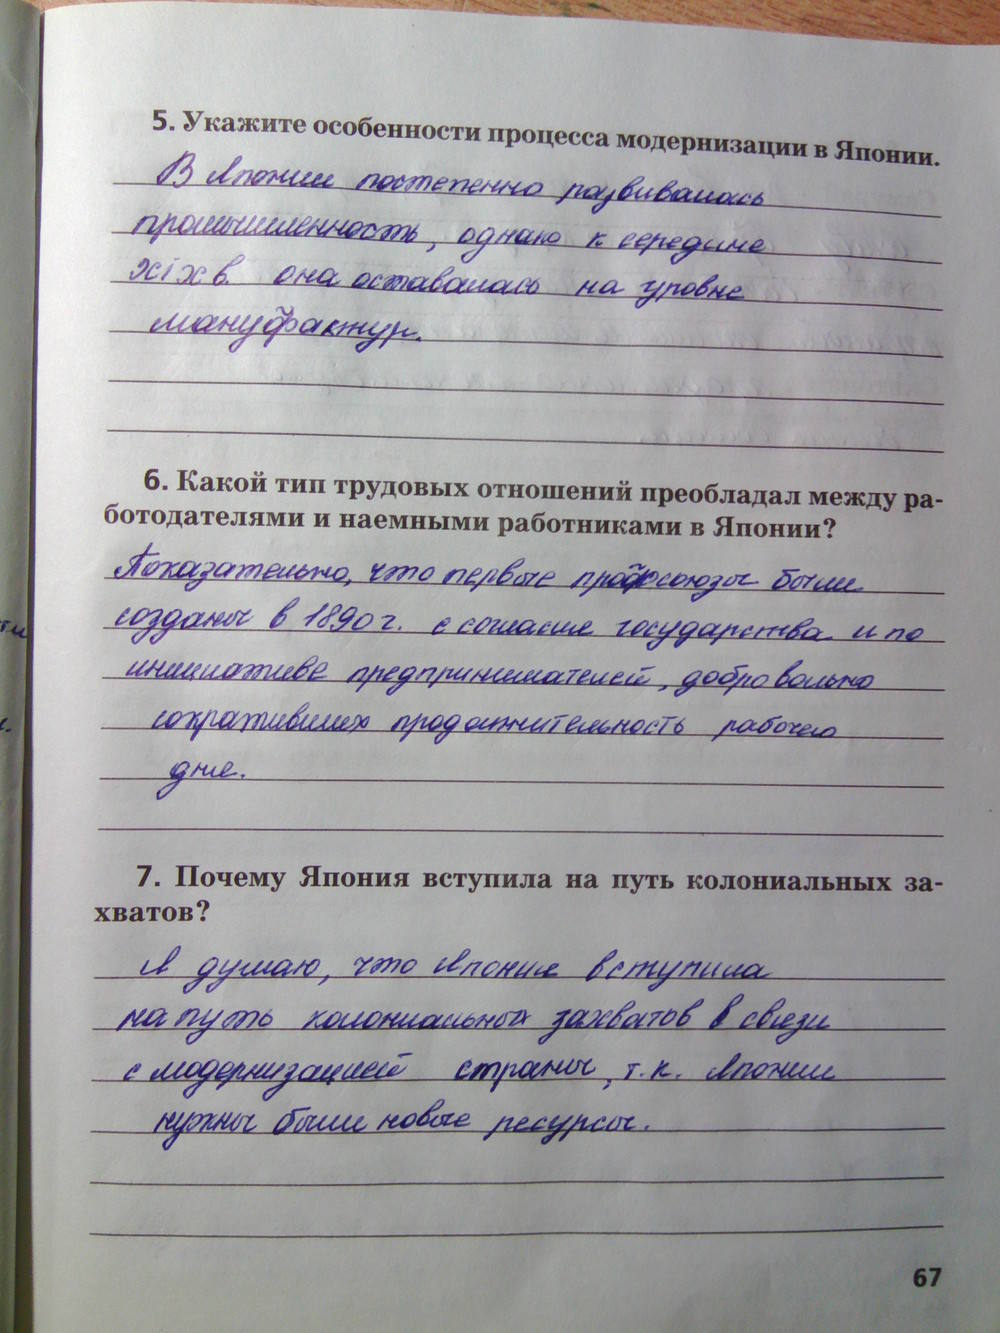 5. Укажите особенности процесса модернизации в Японии.
В Японии постепенно развивалась
промышленность, однако к середине
XIX в. она оставалась на уровне
мануфактур.
6. Какой тип трудовых отношений преобладал между ра-
ботодателями и наемными работниками в Японии?
Показательно, что первые профсоюзы были
созданы в 1890 г. с согласия государства и по
инициативе предпринимателей, добровольно
сокративших продолжительность рабочего
дня.
7. Почему Япония вступила на путь колониальных за-
хватов?
Я думаю, что Япония вступила
на путь колониальных захватов в связи
с модернизацией страны, т.к. Японии
нужны были новые ресурсы.
67